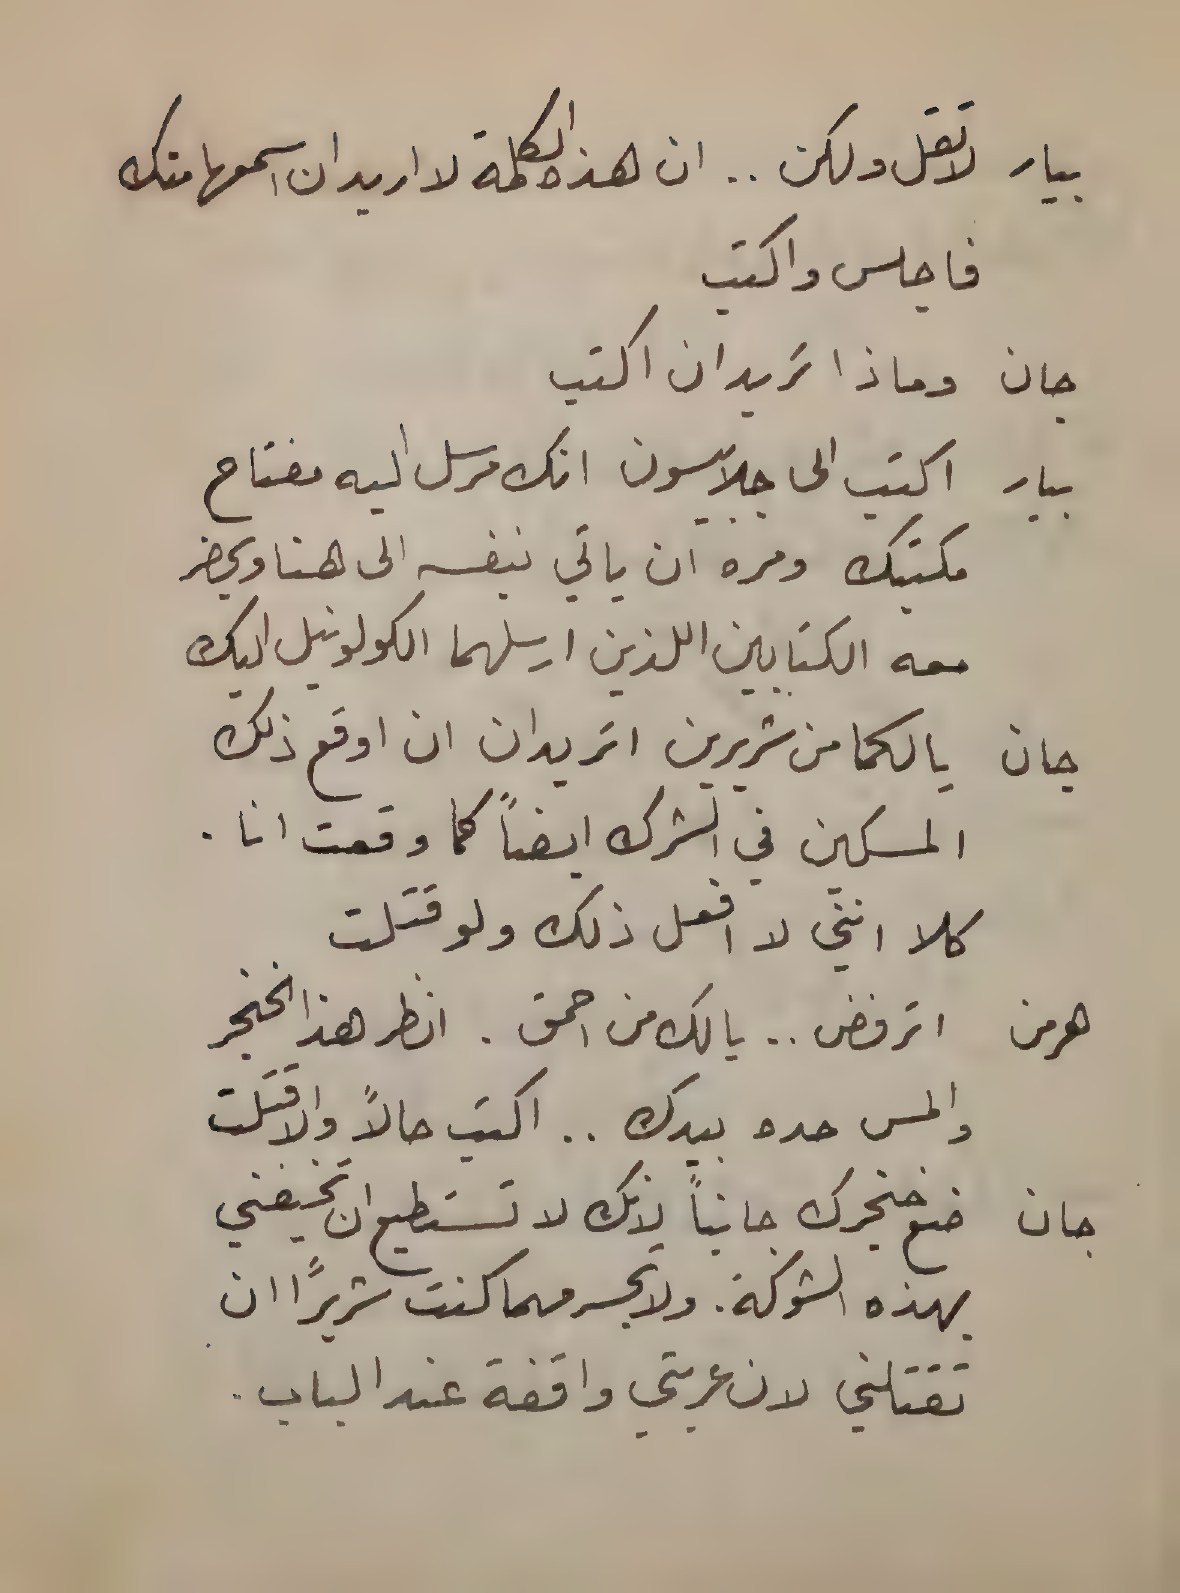 بيار لا تقل ولكن .. ان هذه الكلمة لا اريد ان اسمعها منك
فاجلس واكتب
جان وماذا تريد ان اكتب
بيار اكتب الى جلابيسون انك مرسل اليه مفتاح
مكتبك ومره ان ياتي بنفسه الى هنا ويحضر
معه الكتابين اللذين ارسلهما الكولونيل اليك
جان يالكما من شريرين اتريدان ان اوقع ذلك
المسكين في الشرك ايضاً كما وقعت انا .
كلا انني لا افعل ذلك ولو قتلت
هرمن اترفض .. يالك من احمق . انظر هذا الخنجر
والمس حده بيدك .. اكتب حالاً والا قتلت
جان ضع خنجرك جانباً لانك لا تستطيع ان تخيفني
بهذه الشوكة . ولا تجسر مهما كنت شريرًا ان
تقتلني لان عربتي واقفة عند الباب .